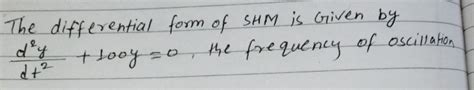 The differential form of SHM is Given by
d²y/dt² + 100y = 0, the frequency of oscillation